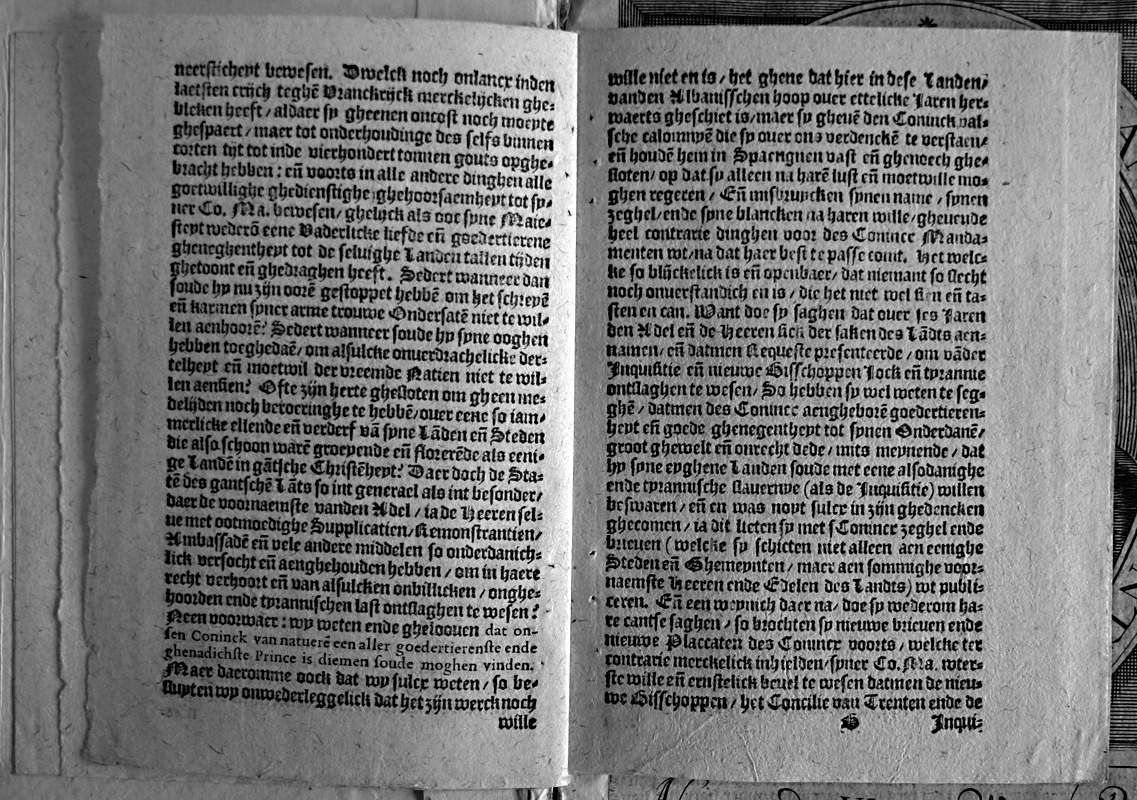 neerstichept bewesen. Dwelck noch onlancx inden
laetsten crijch teghē Vranckrijck merckelijcken ghe-
blcken heeft / aldaer sy gheenen oncost noch moeyte
ghespaert / maer tot onderhoudinge des selfs binnen
corten tijt tot inde vierhondert tonnen gouts opghe-
bracht hebben : eñ voorts in alle andere dinghen alle
goetwillighe ghedienstighe ghehoorsaemheyt tot sy-
ner Co. Ma. bewesen / ghelijck als ooc syne Maie-
steyt wederō eene Vaderlicke liefde eñ goedertierene
gheneghentheyt tot de seluighe Landen tallen tijden
ghetoont eñ ghedraghen heeft. Sedert wanneer dan
soude hy nu zijn oorē gestoppet hebbē om het schreyē
eñ karmen syner arme trouwe Ondersatē niet te wil-
len aenhoorē? Sedert wanneer soude hy syne ooghen
hebben toeghedaē / om alsulcke onuerdrachelicke der-
telheyt eñ moetwil der vreemde Natien niet te wil-
len aensien? Ofte zijn herte ghesloten om gheen me-
delijden noch beroeringhe te hebbē / ouer eene so iam-
merlicke ellende eñ verderf vā syne Lādēn eñ Steden
die also schoon warē groeyende eñ florerēde als eeni-
ge Landē in gātsche Christēheyt? Daer doch de Sta-
tē des gantschen Lāts so int generael als int besonder /
daer de voornaemste vanden Adel / ia de Heeren sel-
ue met ootmoedighe Supplicatien / Remonstrantien /
Ambassadē eñ vele andere middelen so onderdanich-
lick versocht eñ aenghehouden hebben / om in haere
recht verhoort eñ van alsulcken onbillicken / onghe-
hoorden ende tyrannischen last ontslaghen te wesen?
Neen voorwaer: wy weten ende ghelooven dat on-
sen Coninck van naturē een aller goedertierenste ende
ghenadichste Prince is diemen soude moghen vinden.
Maer daeromme oock dat wy sulcx weten / so be-
sluyten wy onwederleggelick dat het zijn werck noch
wille
wille niet en is / het ghene dat hier in dese Landen /
vanden Albanisschen hoop ouer ettelicke Jaren her-
waerts gheschiet is / maer sy gheuē den Coninck val-
sche calomnyē die sy ouer ons verdenckē te verstaen /
eñ houdē hem in Spaengnen vast eñ gheneech ghe-
sloten / op dat sy alleen na harē lust eñ moetwille mo-
ghen regeren / Eñ misbruycken synen name / synen
zeghel / ende syne blancken na haren wille / gheuende
heel contrarie dinghen voor des Conincx Manda-
menten wt / na dat haer best te passe comt. Het welc-
ke so blijckelick is eñ openbaer / dat niemant so slecht
noch onuerstandich en is / die het niet wel sien eñ ta-
sten en can. Want doe sy saghen dat ouer ses Jaren
den Adel eñ de Heeren sich der saken des Lādts aen-
namen / eñ datmen Requeste presenteerde / om vāder
Inquisitie eñ nieuwe Bisschoppen Jock eñ tyrannie
ontslaghen te wesen / So hebben sy wel weten te seg-
ghē / datmen des Conincx aengheborē goedertieren-
heyt eñ goede ghenegentheyt tot synen Onderdanē /
groot ghewelt eñ onrecht dede / mits meynende / dat
hy syne eyghene Landen soude met eene alsodanighe
ende tyrannische slauernye (als de Inquisitie) willen
beswaren / eñ en was noyt sulcx in zijn ghedencken
ghecomen / ia dit lieten sy met sConincx zeghel ende
brieuen (welcke sy schicten niet alleen aen eenighe
Steden eñ Ghemeynten / maer aen sommighe voor-
naemste Heeren ende Edelen des Landts) wt publi-
ceren. Eñ een weynich daer na / doe sy wederom ha-
re cantse saghen / so brochten sy nieuwe brieuen ende
nieuwe Placcaten des Conincx voorts / welcke ter
contrarie merckelick inhielden / syner Co. Ma. wter-
ste wille eñ ernstelick beuel te wesen datmen de nieu-
we Bisschoppen / het Concilie van Trenten ende de
S Inqui-